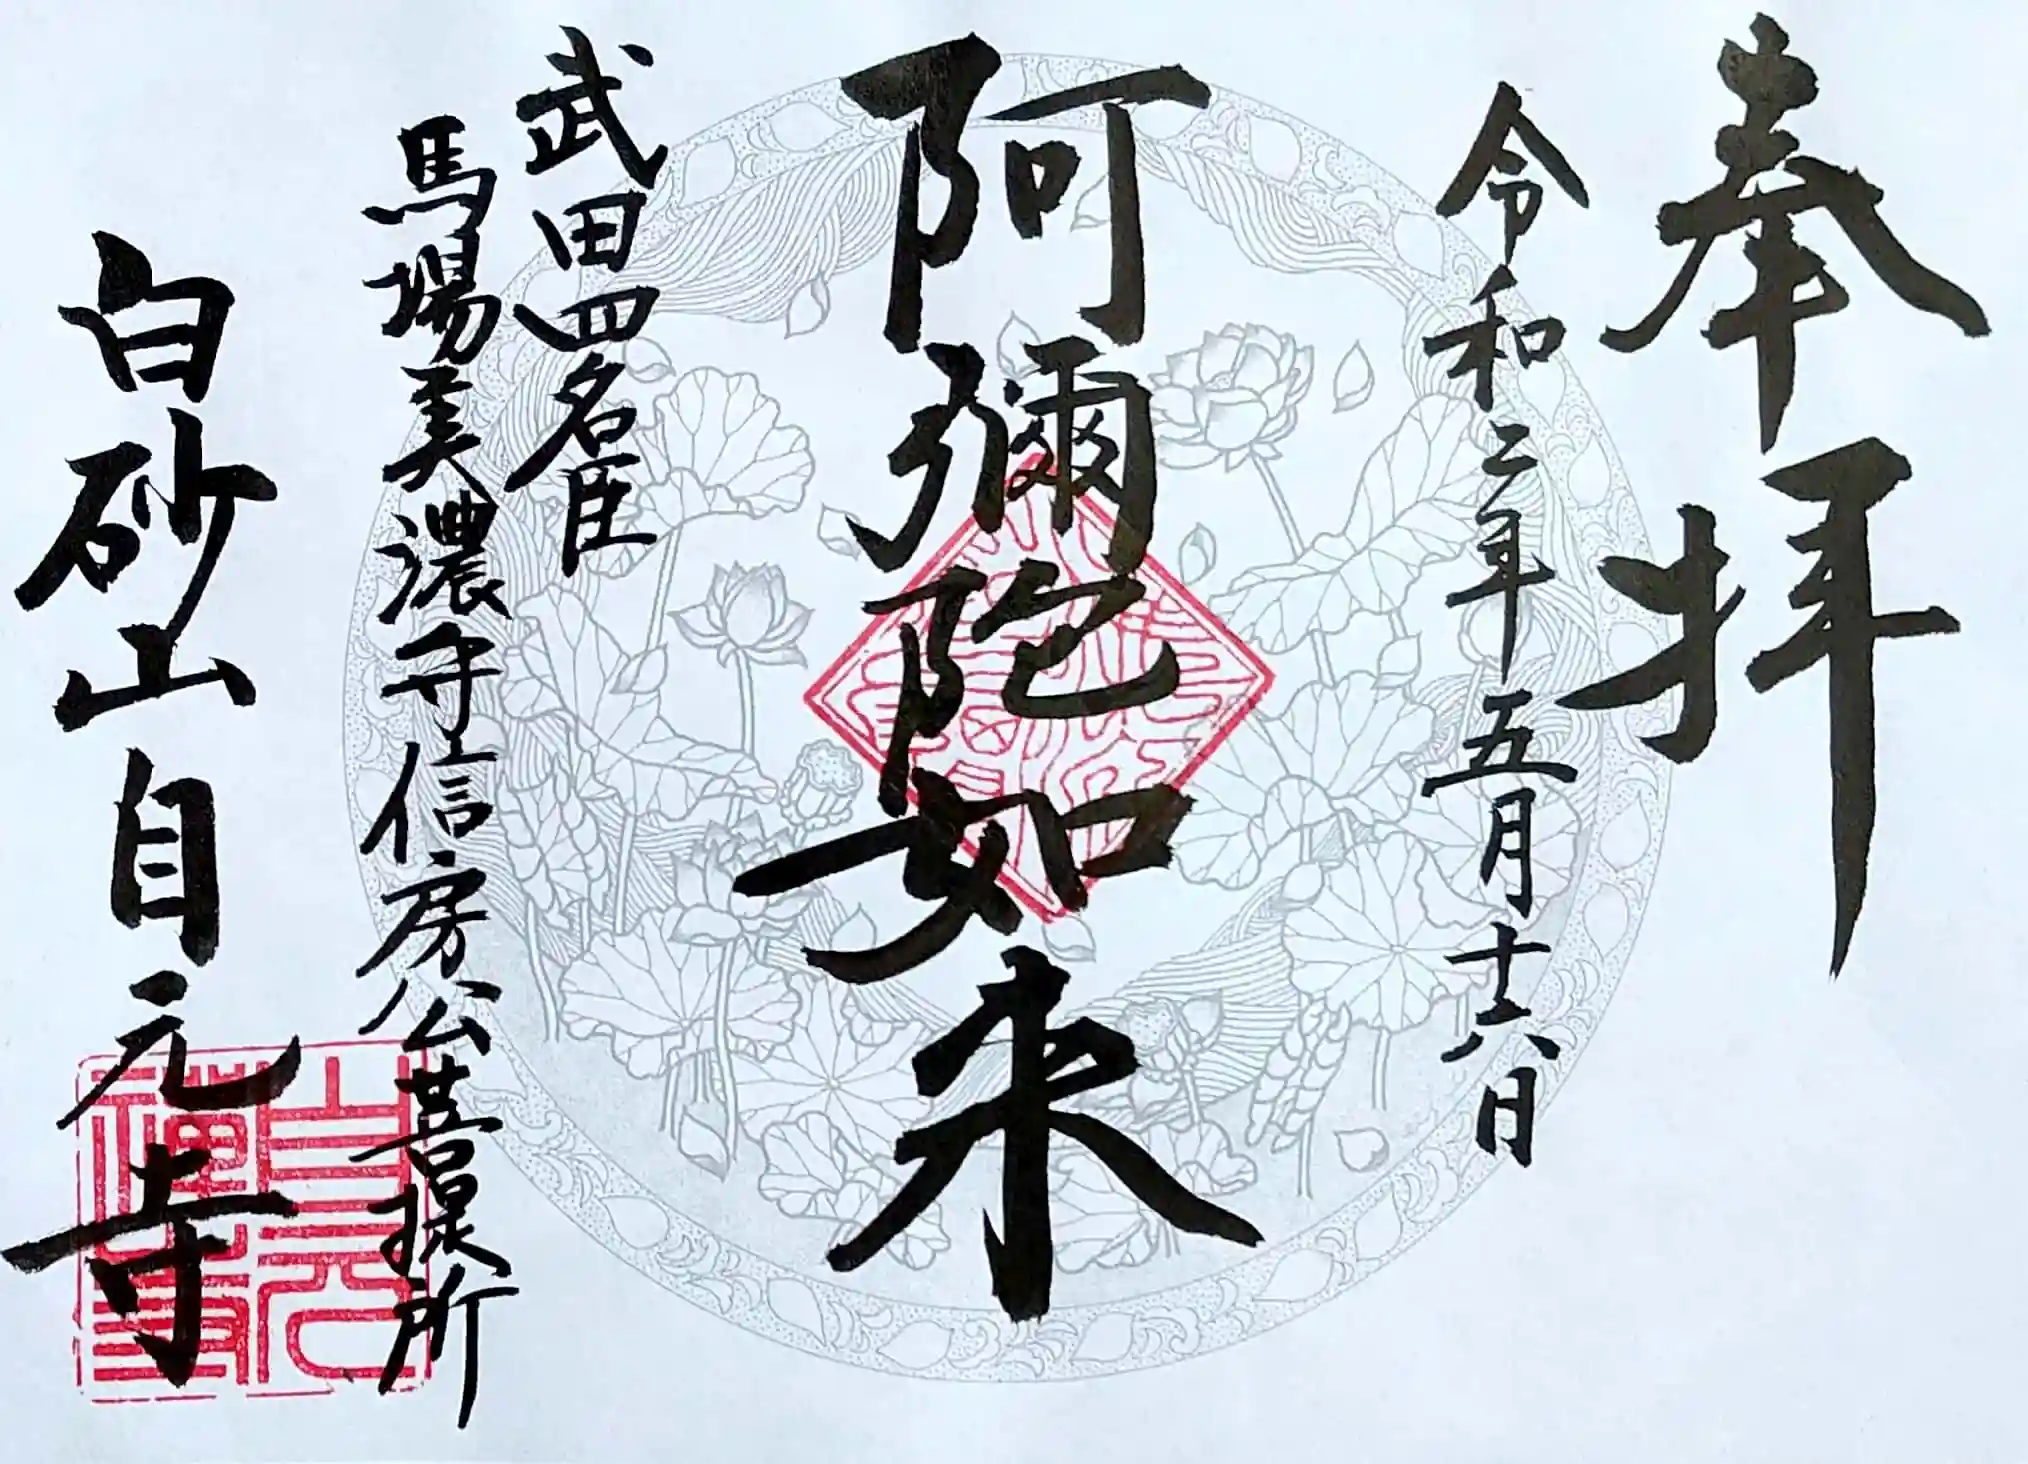 奉拝
令和三年五月十六日
阿彌陀如来
武田四名臣
馬場美濃守信房公菩提所
白砂山自元寺